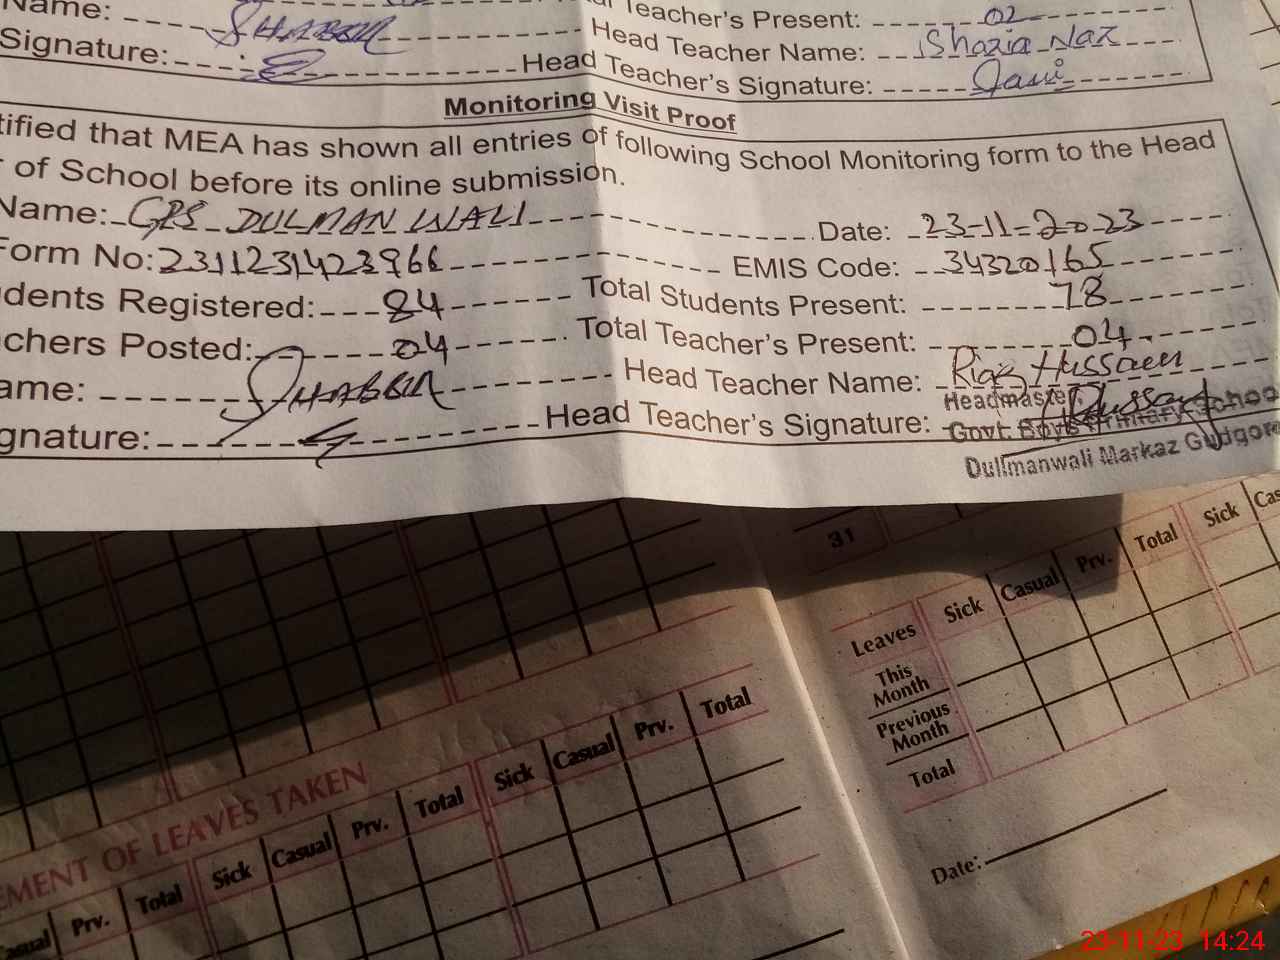 Name: SHABBIR
Teacher's Present: 02
Signature:
Head Teacher Name: Shazia Naz
Head Teacher's Signature:
Monitoring Visit Proof
tified that MEA has shown all entries of following School Monitoring form to the Head
r of School before its online submission.
Name: GPS DULMAN WALI
Date: 23-11-2023
Form No: 2311231423966
EMIS Code: 34320165
udents Registered: 84
Total Students Present: 78
chers Posted: 04
Total Teacher's Present: 04
ame: SHABBIR
Head Teacher Name: Riaz Hussain
gnature:
Head Teacher's Signature:
Headmaster
Govt. Boys Primary School
Dullmanwali Markaz Gudgore
31
Leaves Sick Casual Prv. Total Sick Cas
This Month
Previous Month
Total
Date:
EMENT OF LEAVES TAKEN
Casual Prv. Total Sick Casual Prv. Total Sick Casual Prv. Total
23-11-23 14:24